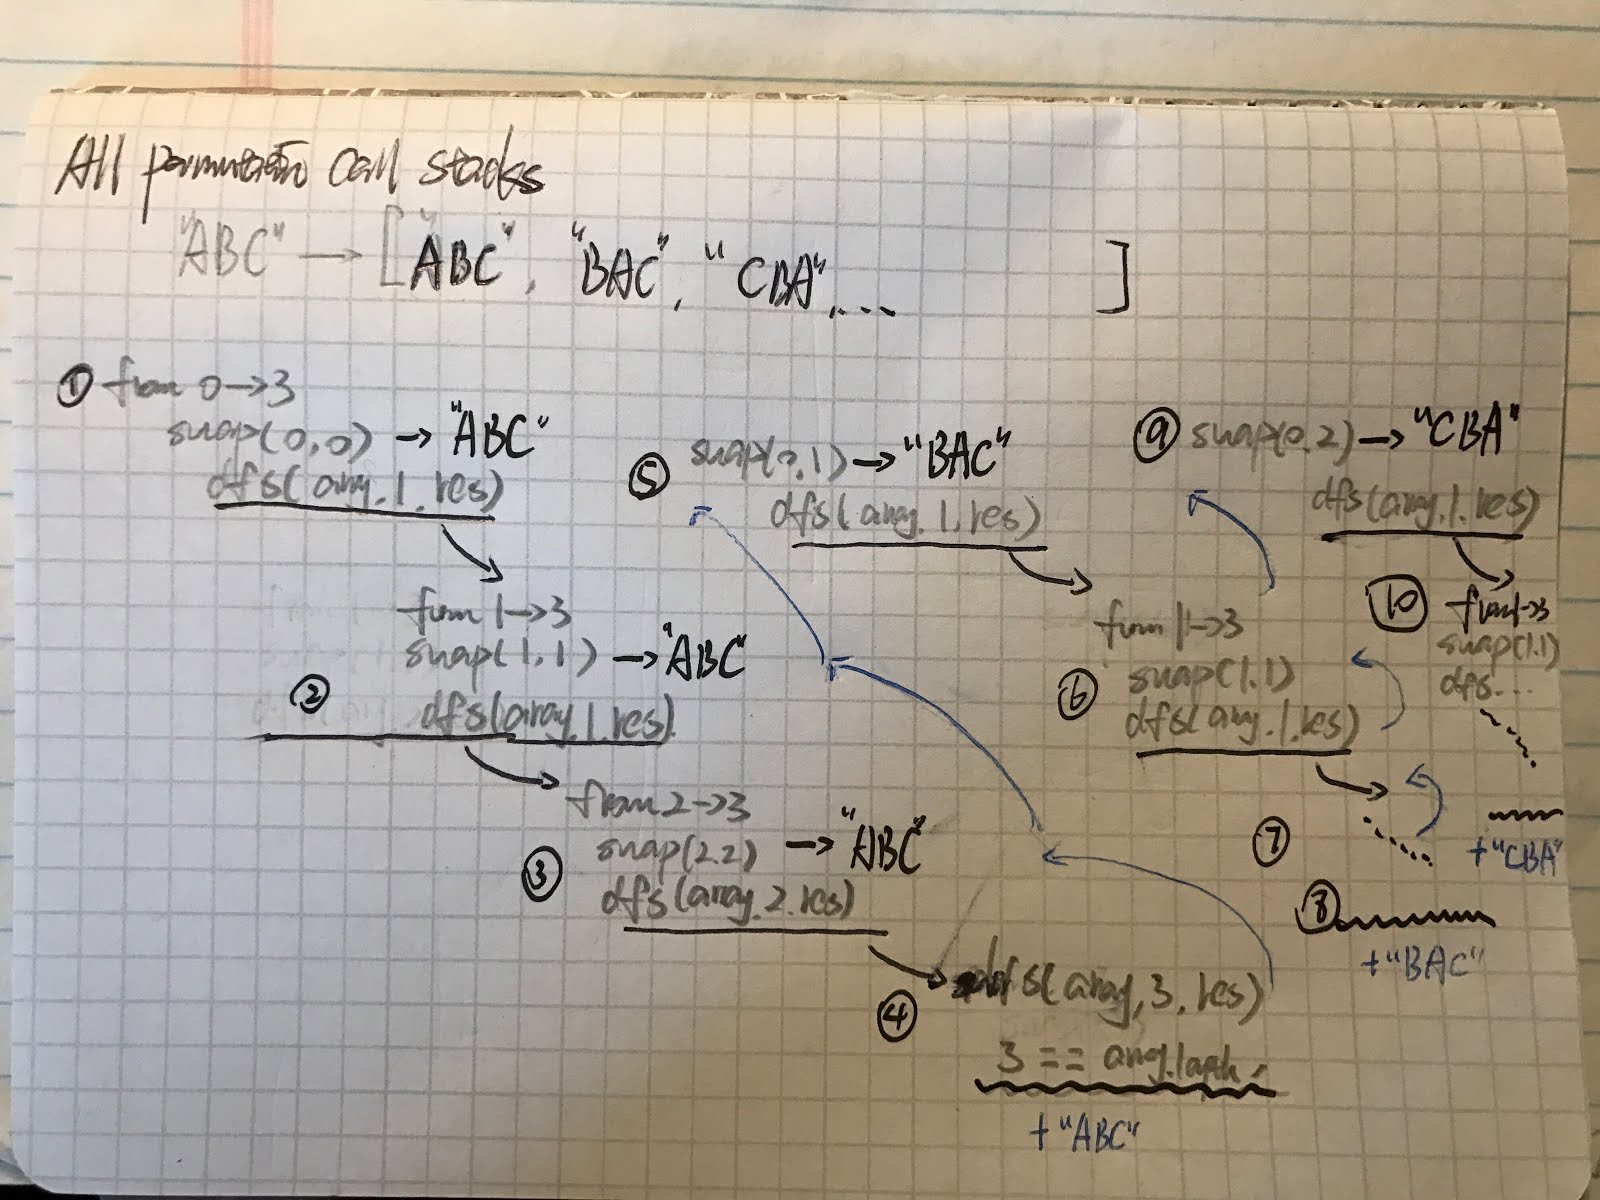 All permutation call stacks
"ABC" → ["ABC", "BAC", "CBA", ... ]
① from 0→3
swap(0,0) → "ABC"
dfs(array,1,res)
② from 1→3
swap(1,1) → "ABC"
dfs(array,1,res)
③ from 2→3
swap(2,2) → "ABC"
dfs(array,2,res)
④ dfs(array,3,res)
3 == array.length
+"ABC"
⑤ swap(0,1) → "BAC"
dfs(array,1,res)
⑥ from 1→3
swap(1,1)
dfs(array,1,res)
⑦
⑧
+"BAC"
⑨ swap(0,2) → "CBA"
dfs(array,1,res)
⑩ from 1→3
swap(1,1)
dfs...
+"CBA"